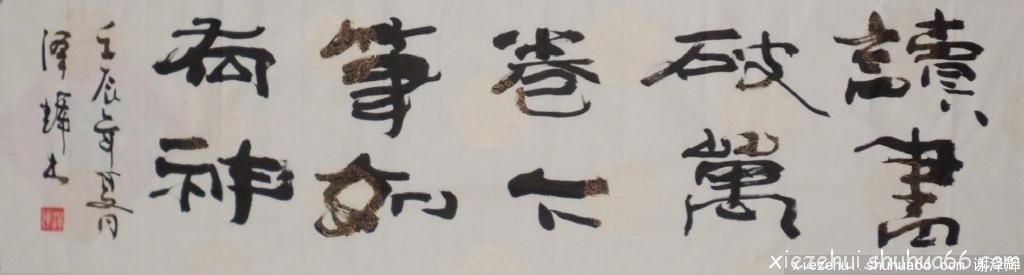 讀書
破萬
卷下
筆如
有神
壬辰年夏月
澤輝書
xiezehui.shuhua66.com
xiezehui.shuhua66.com 谢泽辉